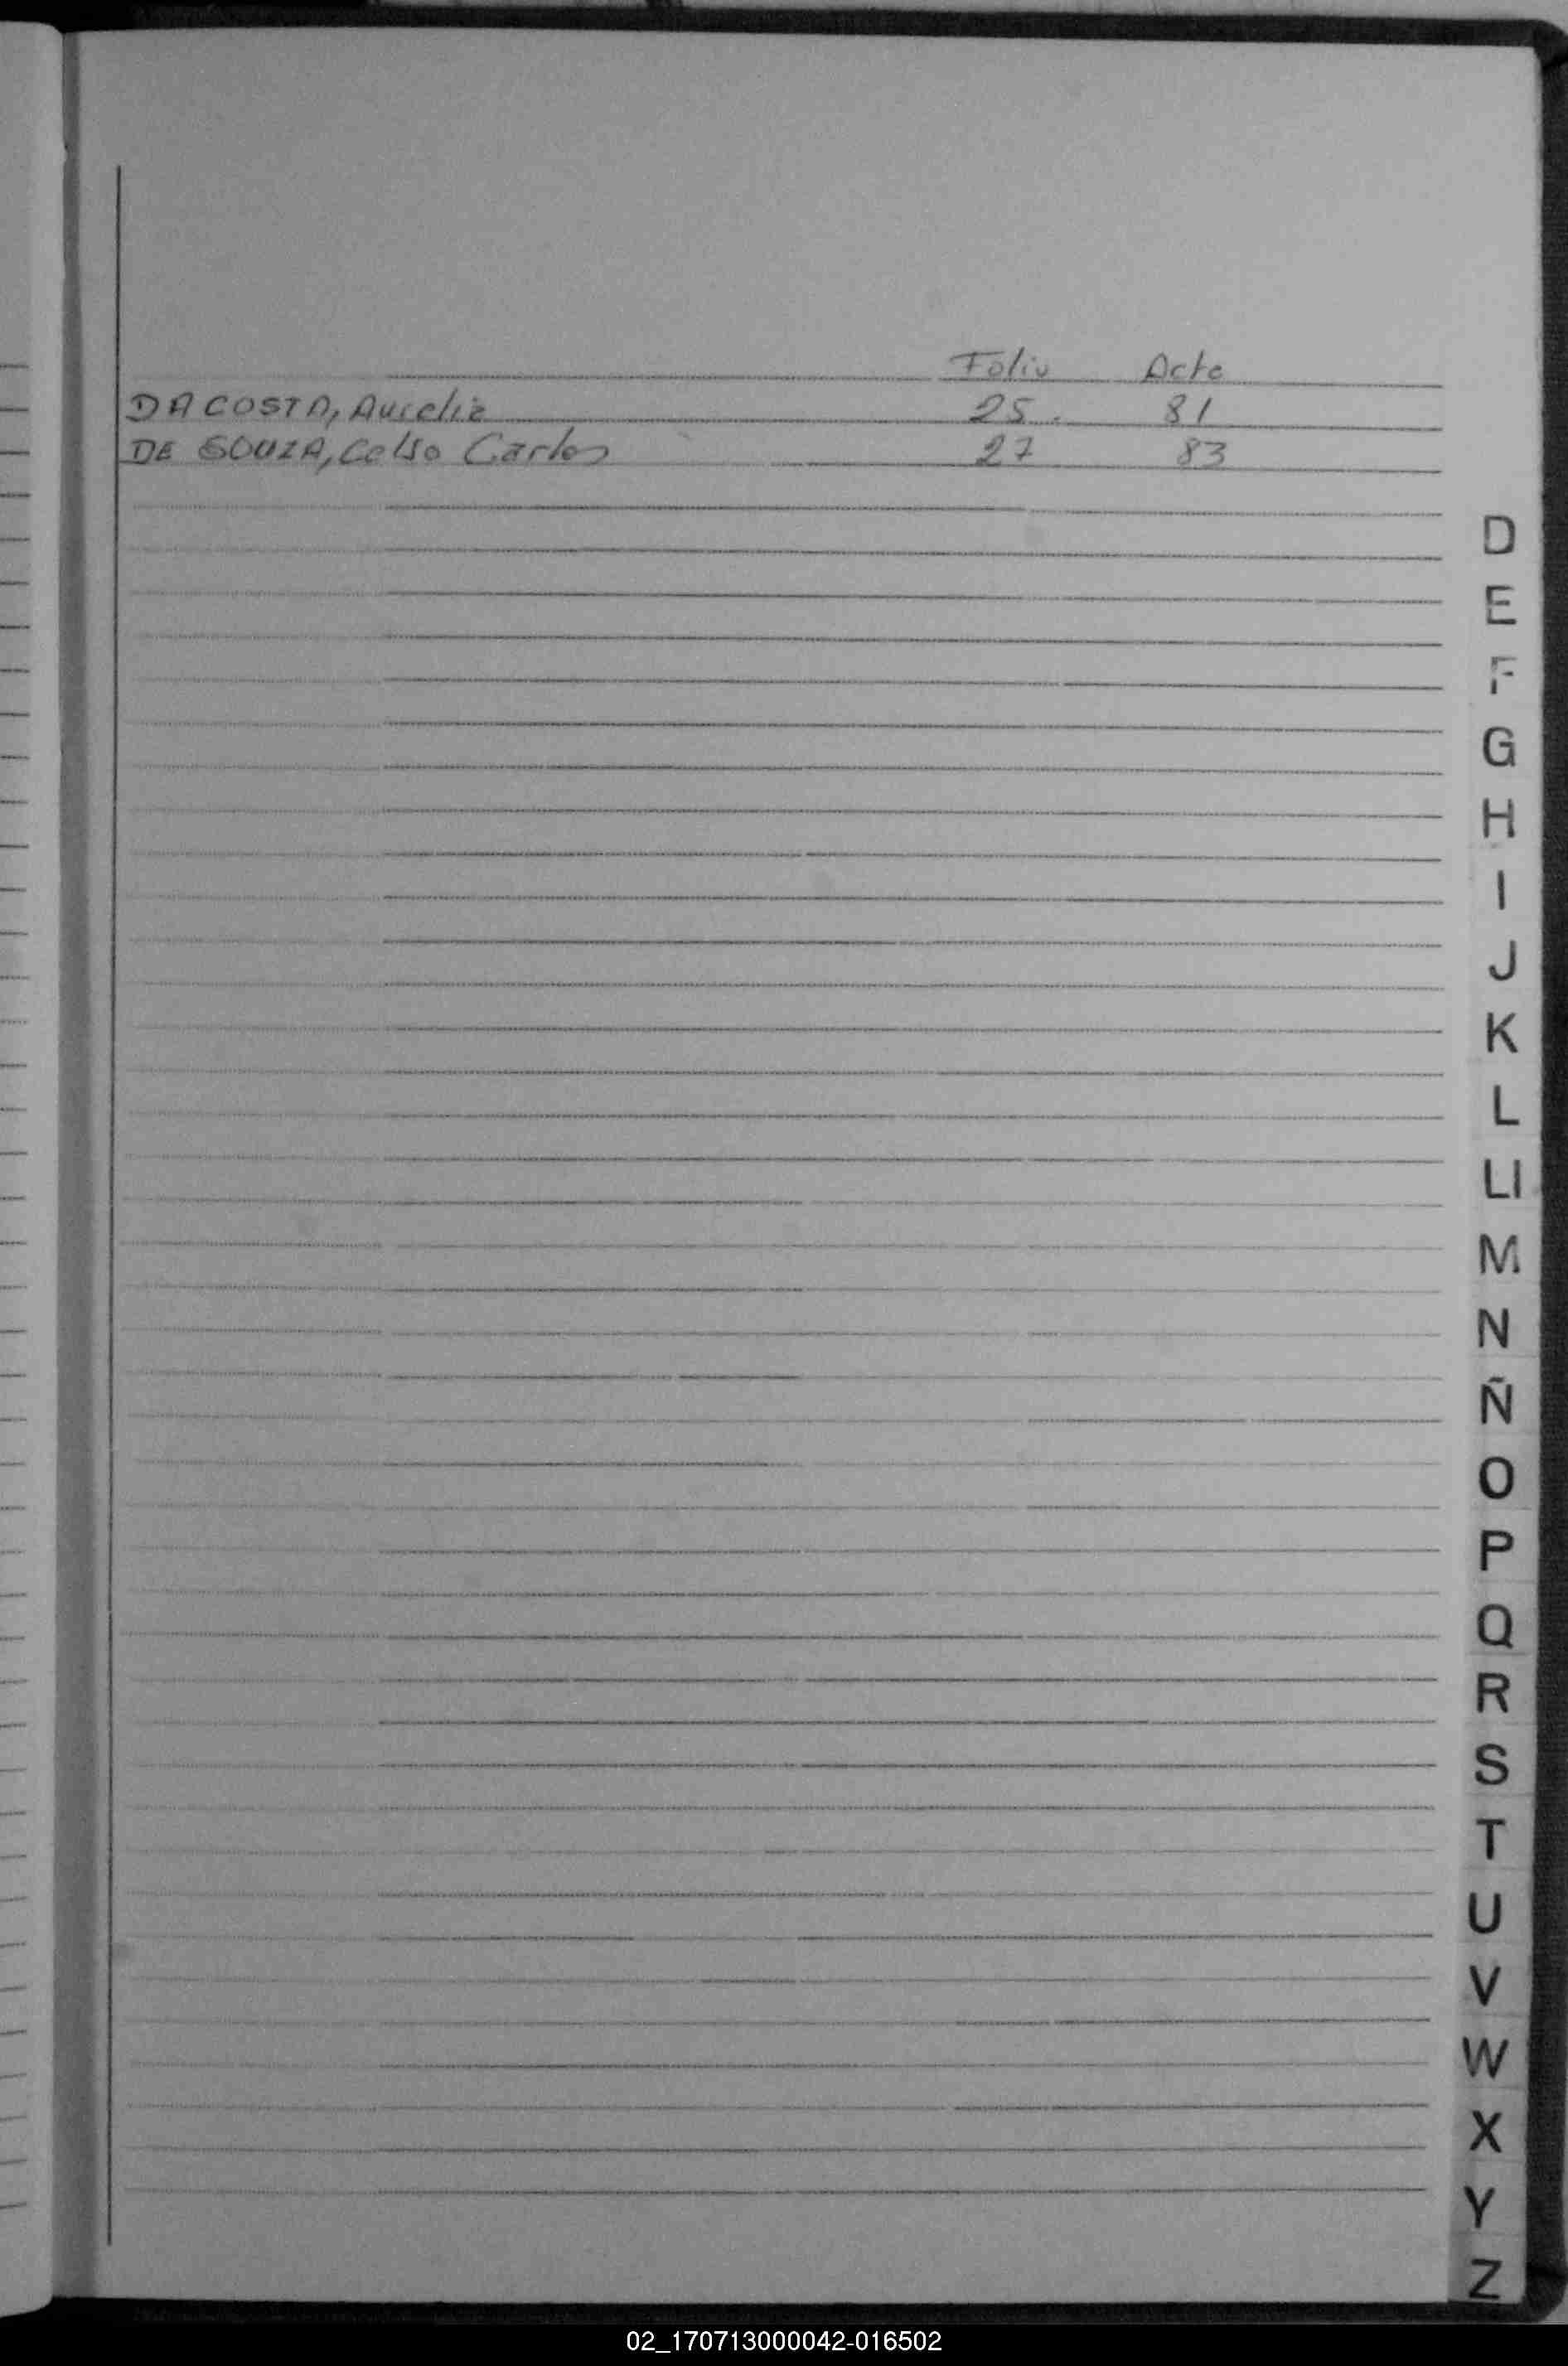 Folio Acta
DA COSTA, Aurelia 25. 81
DE SOUZA, Celso Carlos 27 83
D
E
F
G
H
I
J
K
L
Ll
M
N
Ñ
O
P
Q
R
S
T
U
V
W
X
Y
Z
02_170713000042-016502